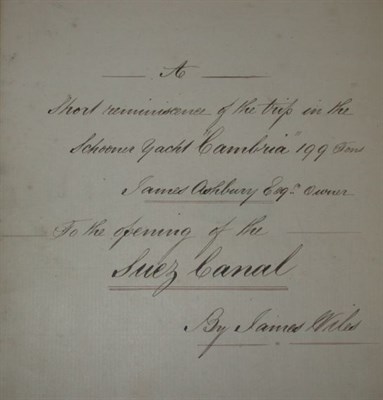 A
Short reminiscence of the trip in the
Schooner Yacht "Cambria" 199 Tons
James Ashbury Esqr. Owner
To the opening of the
Suez Canal
By James Wiles